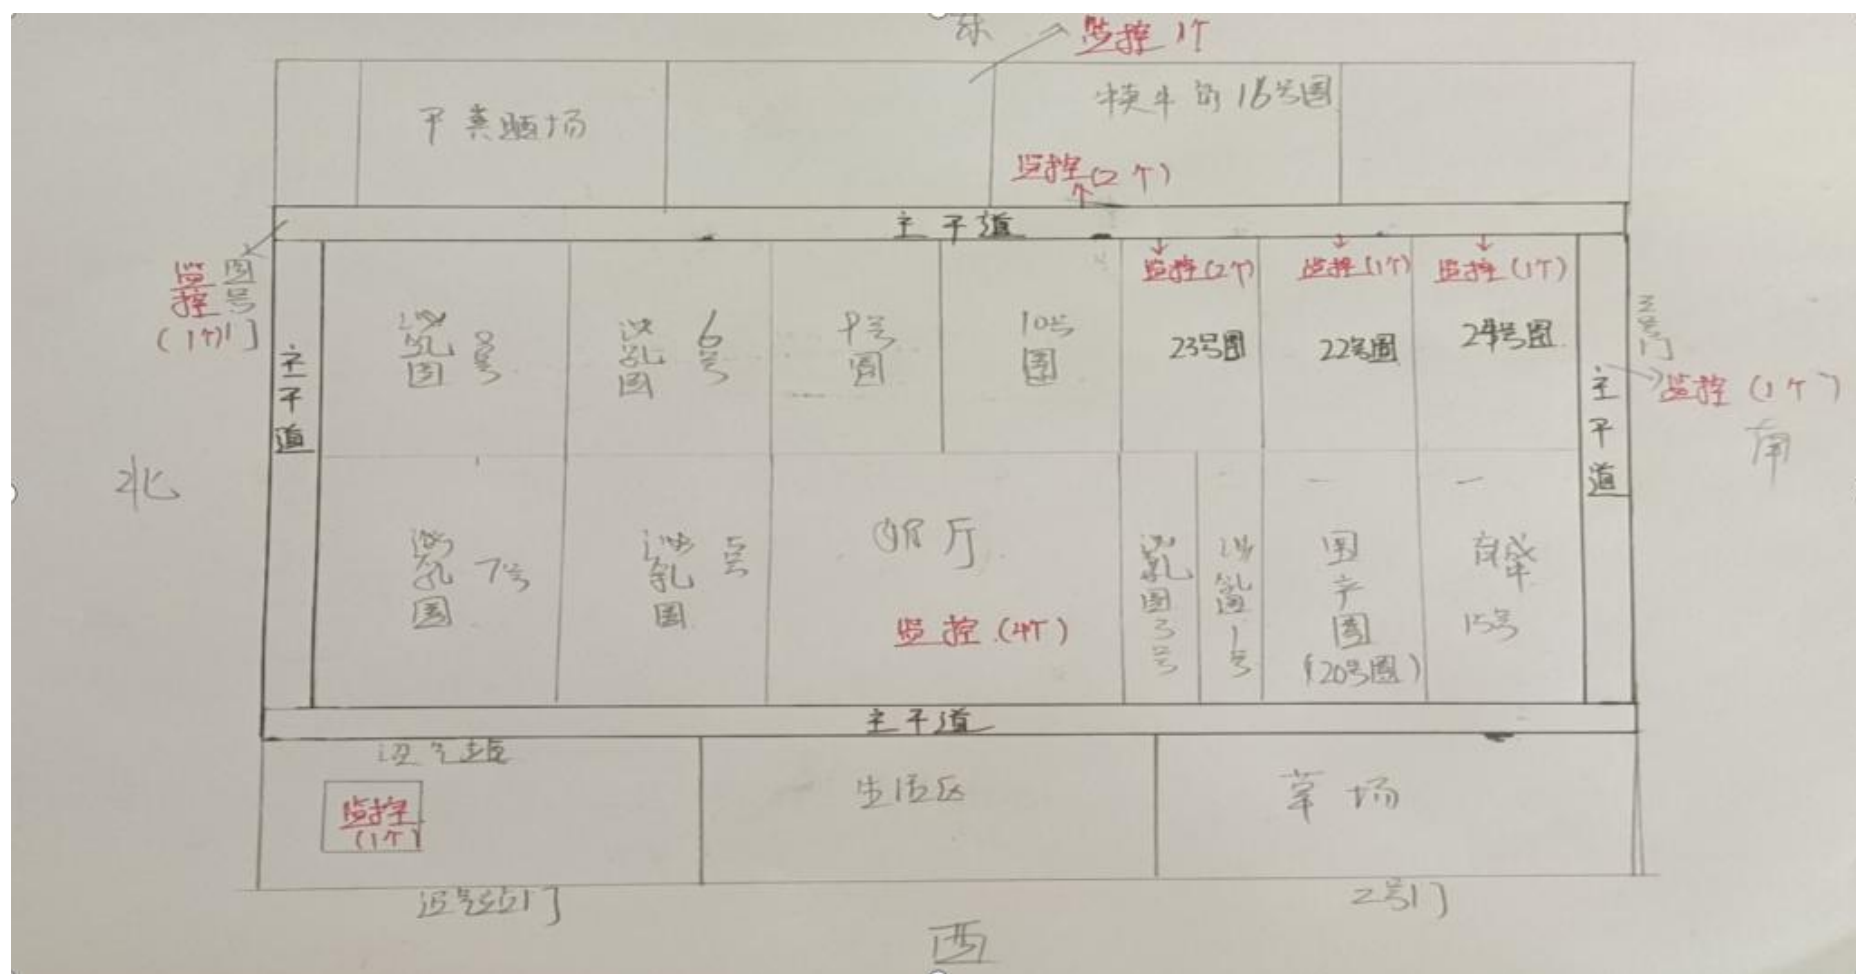 东
监控 1个
干粪晒场
犊牛部16号圈
监控(2个)
主干道
监控
(1个)
号门
监控(2个)
监控(1个)
监控(1个)
三号门
泌乳圈 8号
泌乳圈 6号
9号圈
10号圈
23号圈
22号圈
24号圈
主干道
主干道
监控(1个)
北
南
泌乳圈 7号
泌乳圈 5号
奶厅
监控(4个)
泌乳圈3号
泌乳圈1号
围产圈
(20号圈)
15号
主干道
沼气站
监控
(1个)
生活区
草场
沼气站门
2号门
西